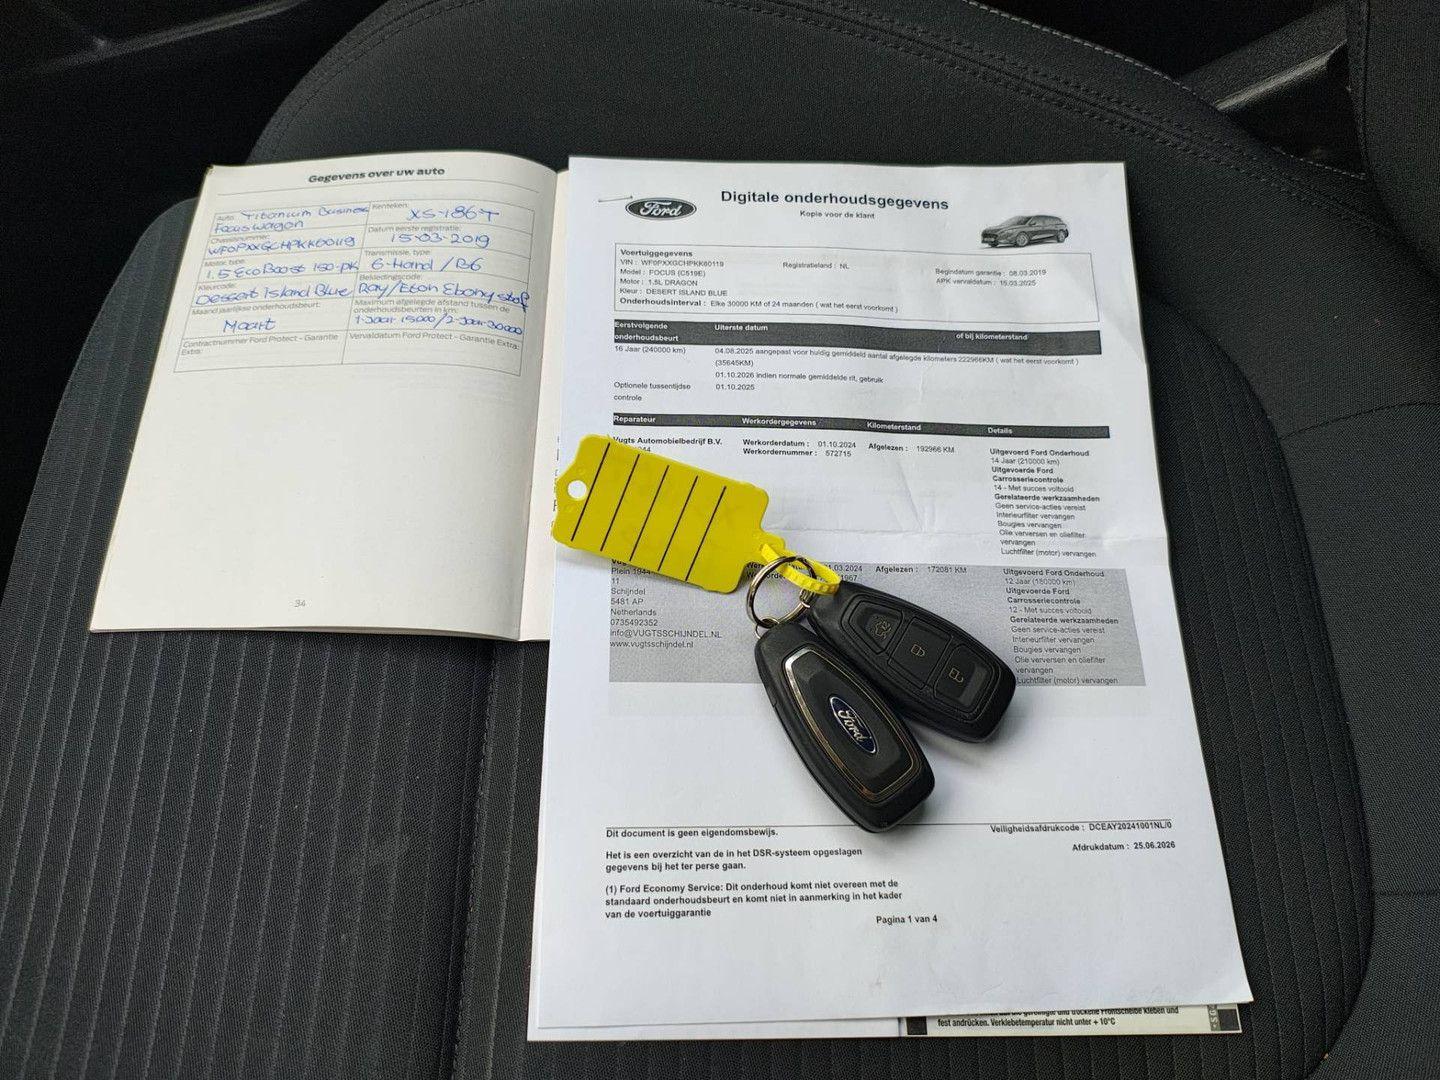 Gegevens over uw auto
Auto: Titanium Business
Focus wagon
Kenteken:
XS-186-T
Chassisnummer:
WF0PXXGCHPKK60119
Datum eerste registratie:
15-03-2019
Motor, type:
1.5 EcoBoost 150-pk
Transmissie, type:
6-Hand / B6
Kleurcode:
Dessert Island Blue
Bekledingscode:
Ray/Eton Ebony stof
Maand jaarlijkse onderhoudsbeurt:
Maart
Maximum afgelegde afstand tussen de
onderhoudsbeurten in km:
1-Jaar-15000/2-Jaar-30000
Contractnummer Ford Protect - Garantie
Extra:
Vervaldatum Ford Protect - Garantie Extra:
34
Ford
Digitale onderhoudsgegevens
Kopie voor de klant
Voertuiggegevens
VIN : WF0PXXGCHPKK60119
Registratieland : NL
Begindatum garantie : 08.03.2019
Model : FOCUS (C519E)
APK vervaldatum : 15.03.2025
Motor : 1.5L DRAGON
Kleur : DESERT ISLAND BLUE
Onderhoudsinterval : Elke 30000 KM of 24 maanden ( wat het eerst voorkomt )
Eerstvolgende
onderhoudsbeurt
Uiterste datum
of bij kilometerstand
16 Jaar (240000 km)
04.08.2025 aangepast voor huidig gemiddeld aantal afgelegde kilometers 222966KM ( wat het eerst voorkomt )
(35645KM)
01.10.2026 indien normale gemiddelde rit, gebruik
Optionele tussentijdse
controle
01.10.2025
Reparateur
Werkordergegevens
Kilometerstand
Details
Vugts Automobielbedrijf B.V.
Werkorderdatum : 01.10.2024
Werkordernummer : 572715
Afgelezen : 192966 KM
Uitgevoerd Ford Onderhoud
14 Jaar (210000 km)
Uitgevoerde Ford
Carrosseriecontrole
14 - Met succes voltooid
Gerelateerde werkzaamheden
Geen service-acties vereist
Interieurfilter vervangen
Bougies vervangen
Olie verversen en oliefilter
vervangen
Luchtfilter (motor) vervangen
Plein 1944
11
Schijndel
5481 AP
Netherlands
0735492352
info@VUGTSSCHIJNDEL.NL
www.vugtsschijndel.nl
.03.2024
1967
Afgelezen : 172081 KM
Uitgevoerd Ford Onderhoud
12 Jaar (180000 km)
Uitgevoerde Ford
Carrosseriecontrole
12 - Met succes voltooid
Gerelateerde werkzaamheden
Geen service-acties vereist
Interieurfilter vervangen
Bougies vervangen
Olie verversen en oliefilter
vervangen
Luchtfilter (motor) vervangen
Ford
Dit document is geen eigendomsbewijs.
Veiligheidsafdrukcode : DCEAY20241001NL/0
Het is een overzicht van de in het DSR-systeem opgeslagen
gegevens bij het ter perse gaan.
Afdrukdatum : 25.06.2026
(1) Ford Economy Service: Dit onderhoud komt niet overeen met de
standaard onderhoudsbeurt en komt niet in aanmerking in het kader
van de voertuiggarantie
Pagina 1 van 4
gereinigte und trockene Frontscheibe kleben und
fest andrücken. Verklebetemperatur nicht unter + 10°C